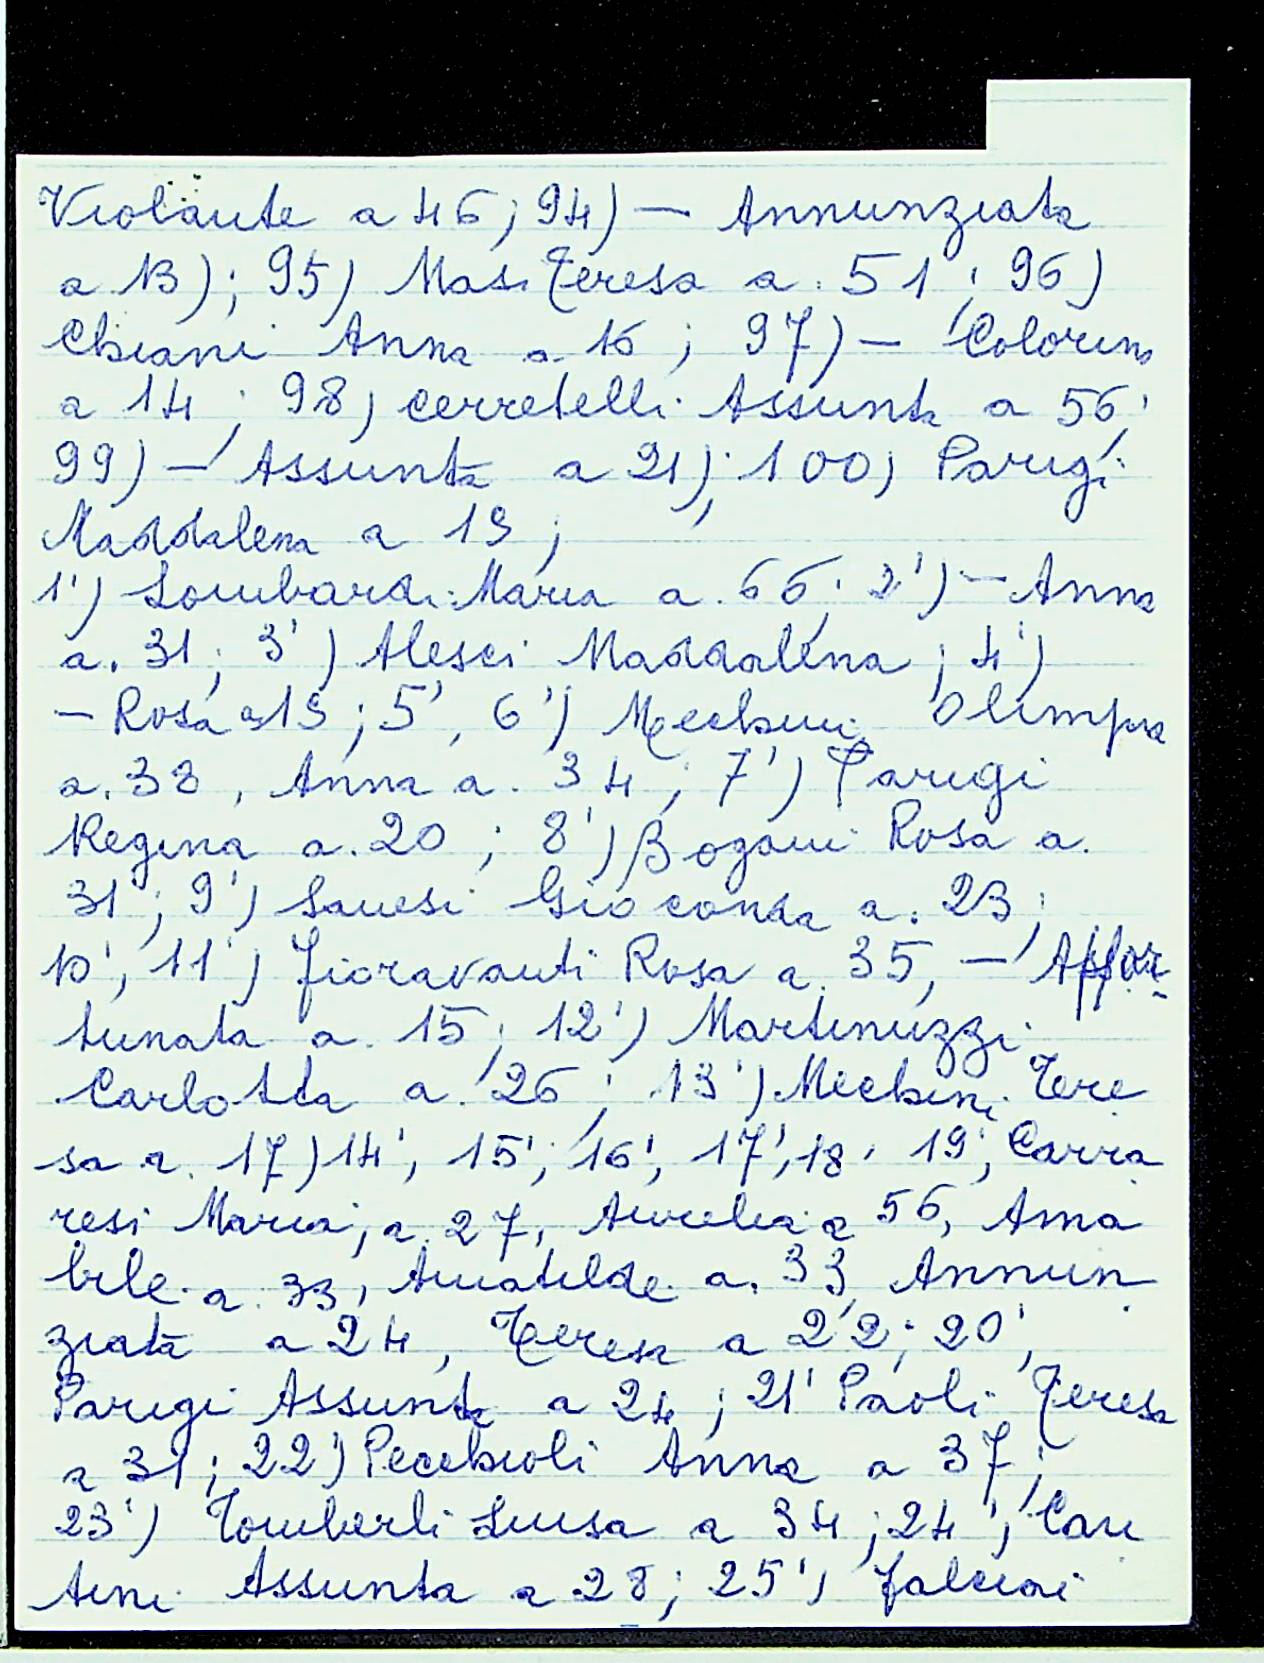 Violante a 46; 94) — Annunziata
a 13); 95) Masi Teresa a. 51; 96)
Chiani Anna a. 16; 97) — Colorin
a 14; 98) Cerretelli Assunta a 56;
99) — Assunta a 21); 100) Parigi
Maddalena a 19;
1') Lombardi Maria a. 66; 2') — Anna
a. 31; 3') Alesci Maddalena; 4')
— Rosa a 19; 5', 6') Mechini Olimpia
a. 38, Anna a. 34; 7') Parigi
Regina a. 20; 8') Bogani Rosa a.
31; 9') Sanesi Gioconda a. 23;
10', 11') Fioravanti Rosa a. 35, — Affor-
tunata a. 15; 12') Martinuzzi
Carlotta a. 26; 13') Mechini Tere
sa a. 17) 14', 15', 16', 17', 18' 19', Carra
resi Maria, a. 27, Aurelia a 56, Ama
bile a. 33, Amatilde a. 33, Annun
ziata a 24, Teresa a 22; 20',
Parigi Assunta a 24; 21' Paoli Teresa
a 31; 22') Pecchioli Anna a 37;
23') Tomberli Luisa a 34; 24', Can
tini Assunta a 28; 25', Falciai